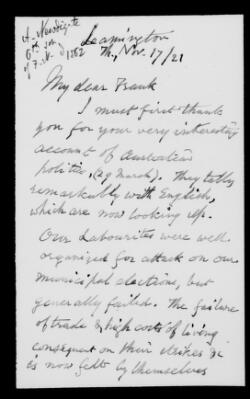 A. Newdigate
6th son
of F. N. of 1862
Leamington
Th, Nov. 17/21
My dear Frank
I must first thank
you for your very interesting
account of Australian
politics, (29 March). They tally
remarkably with English,
which are now looking up.
Our Labourites were well
organized for attack on our
municipal elections, but
generally failed. The failure
of trade & high costs of living
consequent on their strikes &c
is now felt by themselves